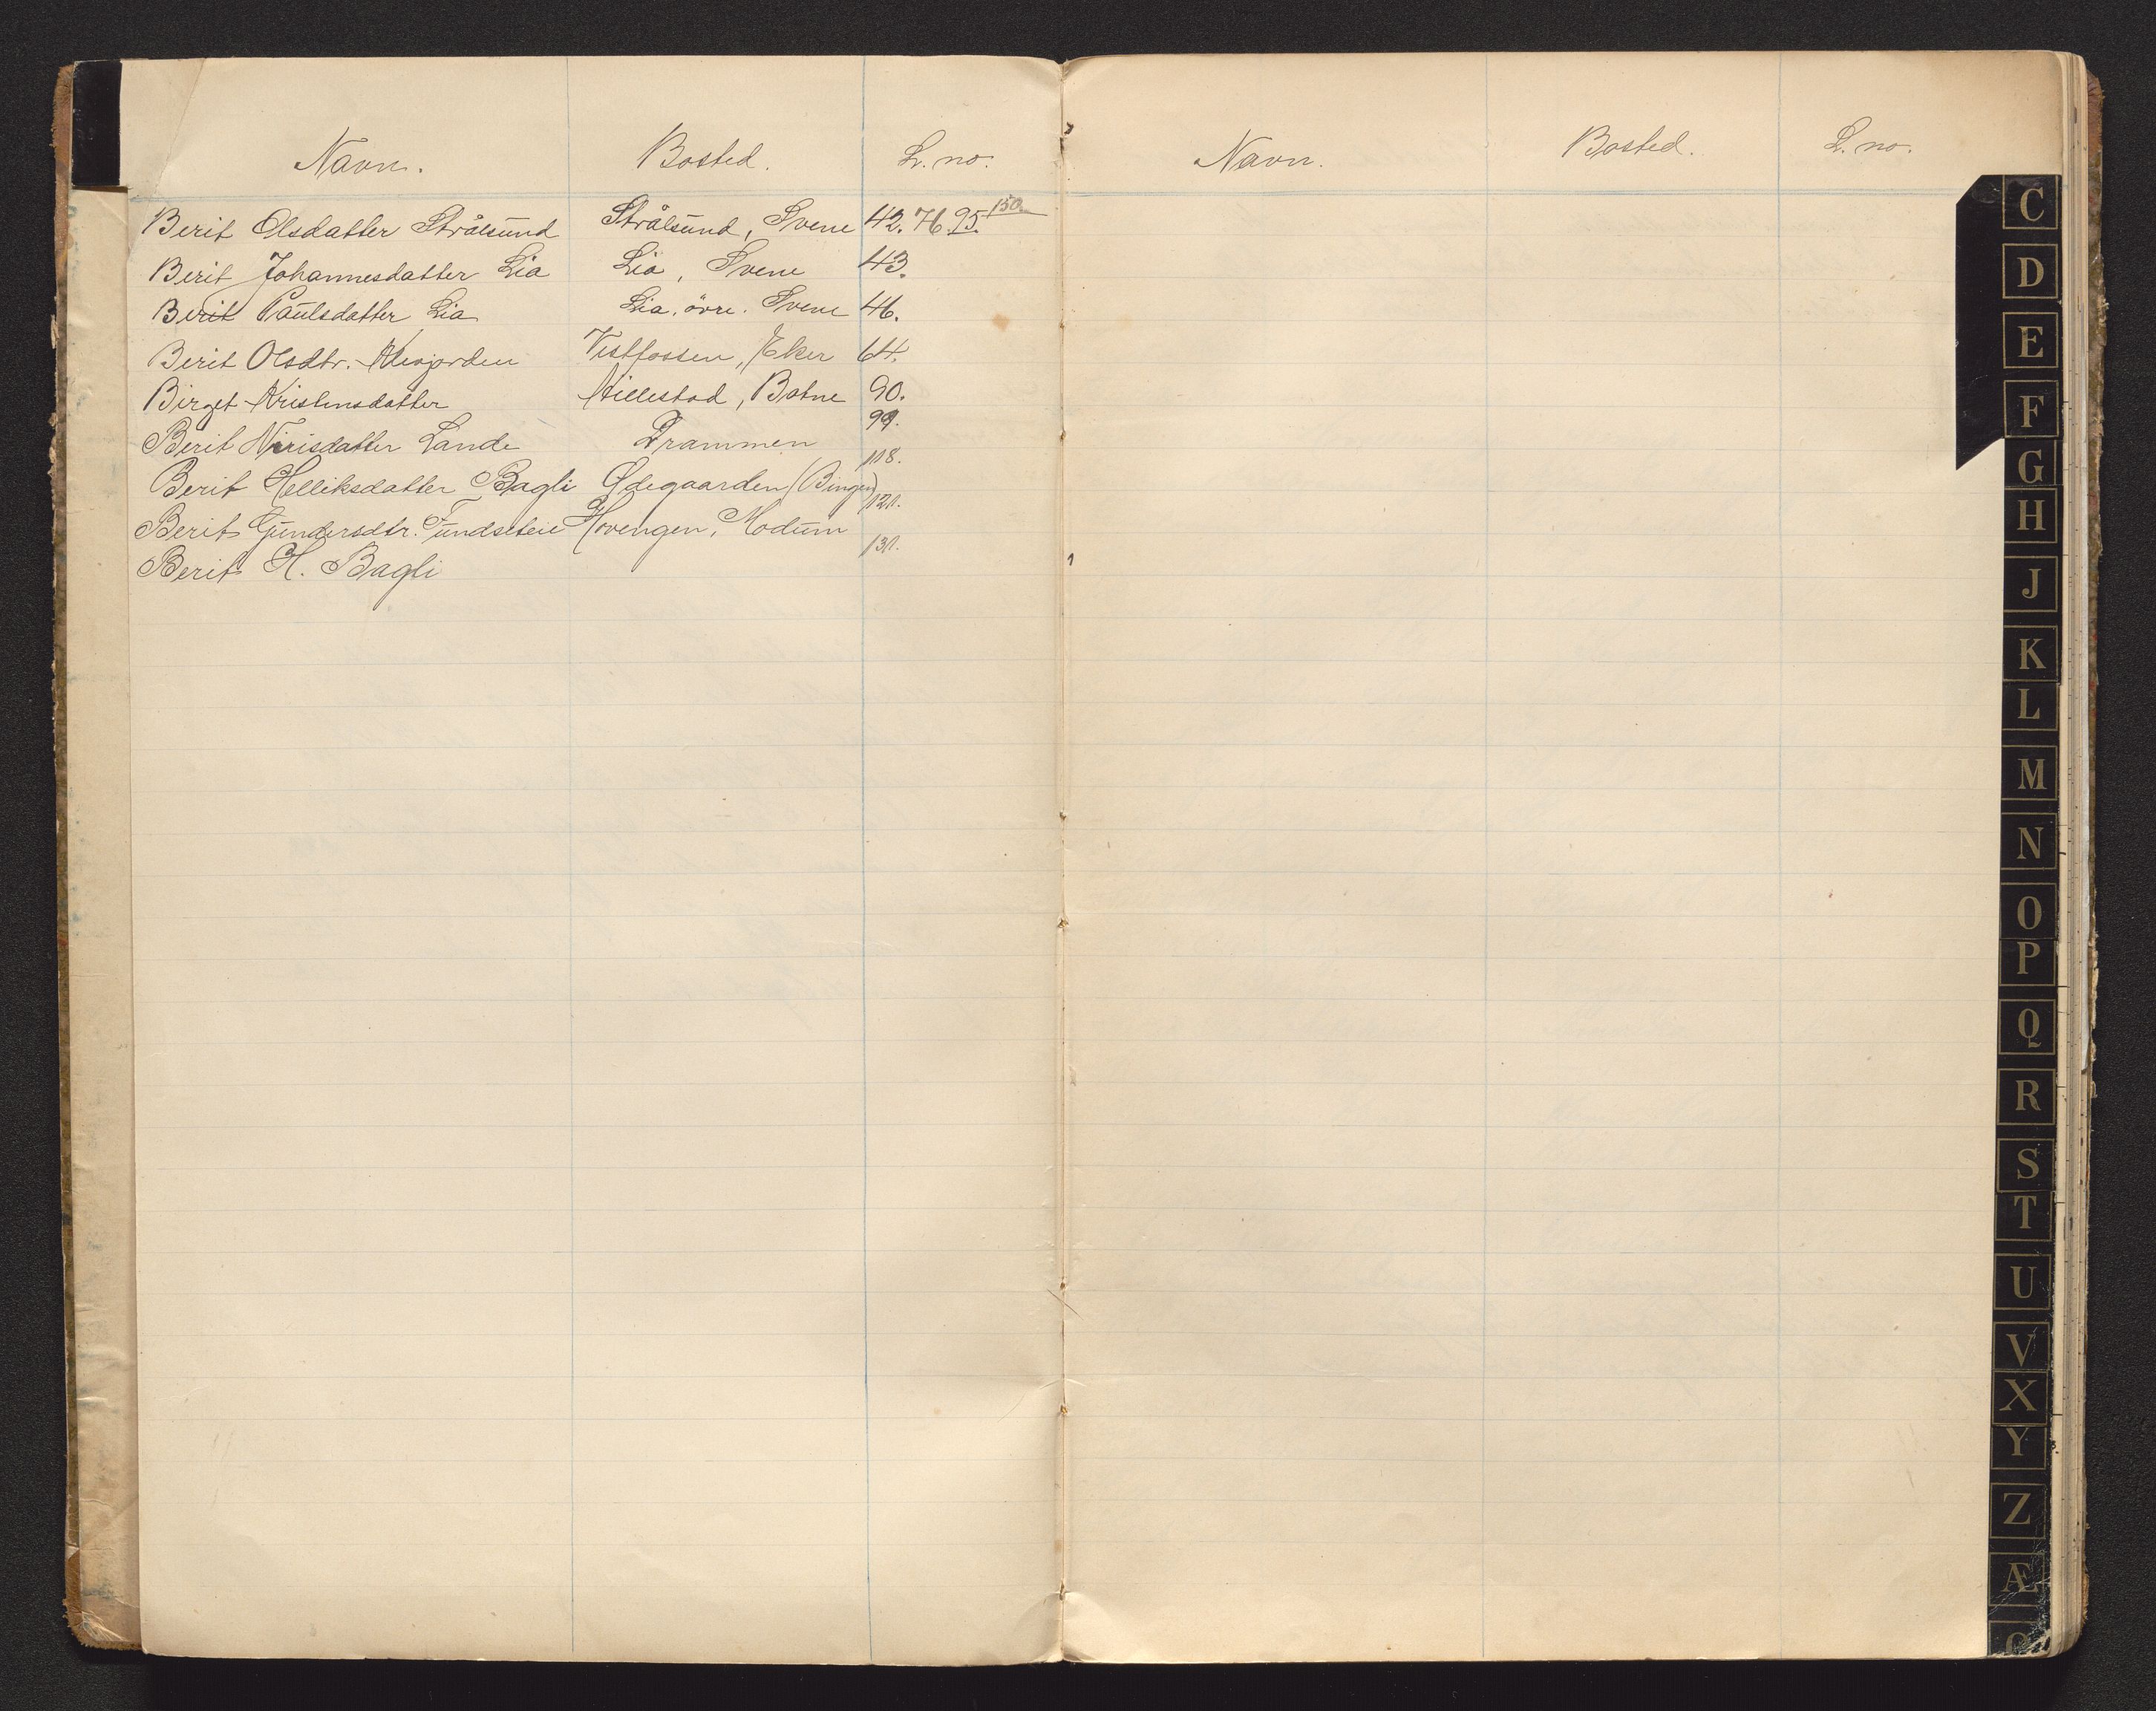 Navn. Bosted. L. no.
Berit Olsdatter Strålsund Strålsund, Svene 42. 76. 95. 150.
Berit Johannesdatter Lia Lia, Svene 43.
Berit Paulsdatter Lia Lia, övre. Svene 46.
Berit Olsdtr. Vestfossen, Eker 64.
Birget Kristensdatter Hillestad, Botne 90.
Berit Nirisdatter Lande Drammen 99.
Berit Helliksdatter Bagli Ødegaarden (Bingen) 118.
Berit Gundersdtr. Fundseteie Hovengen, Modum 121.
Berit H. Bagli 131.
Navn. Bosted. L. no.
C
D
E
F
G
H
J
K
L
M
N
O
P
Q
R
S
T
U
V
X
Y
Z
Æ